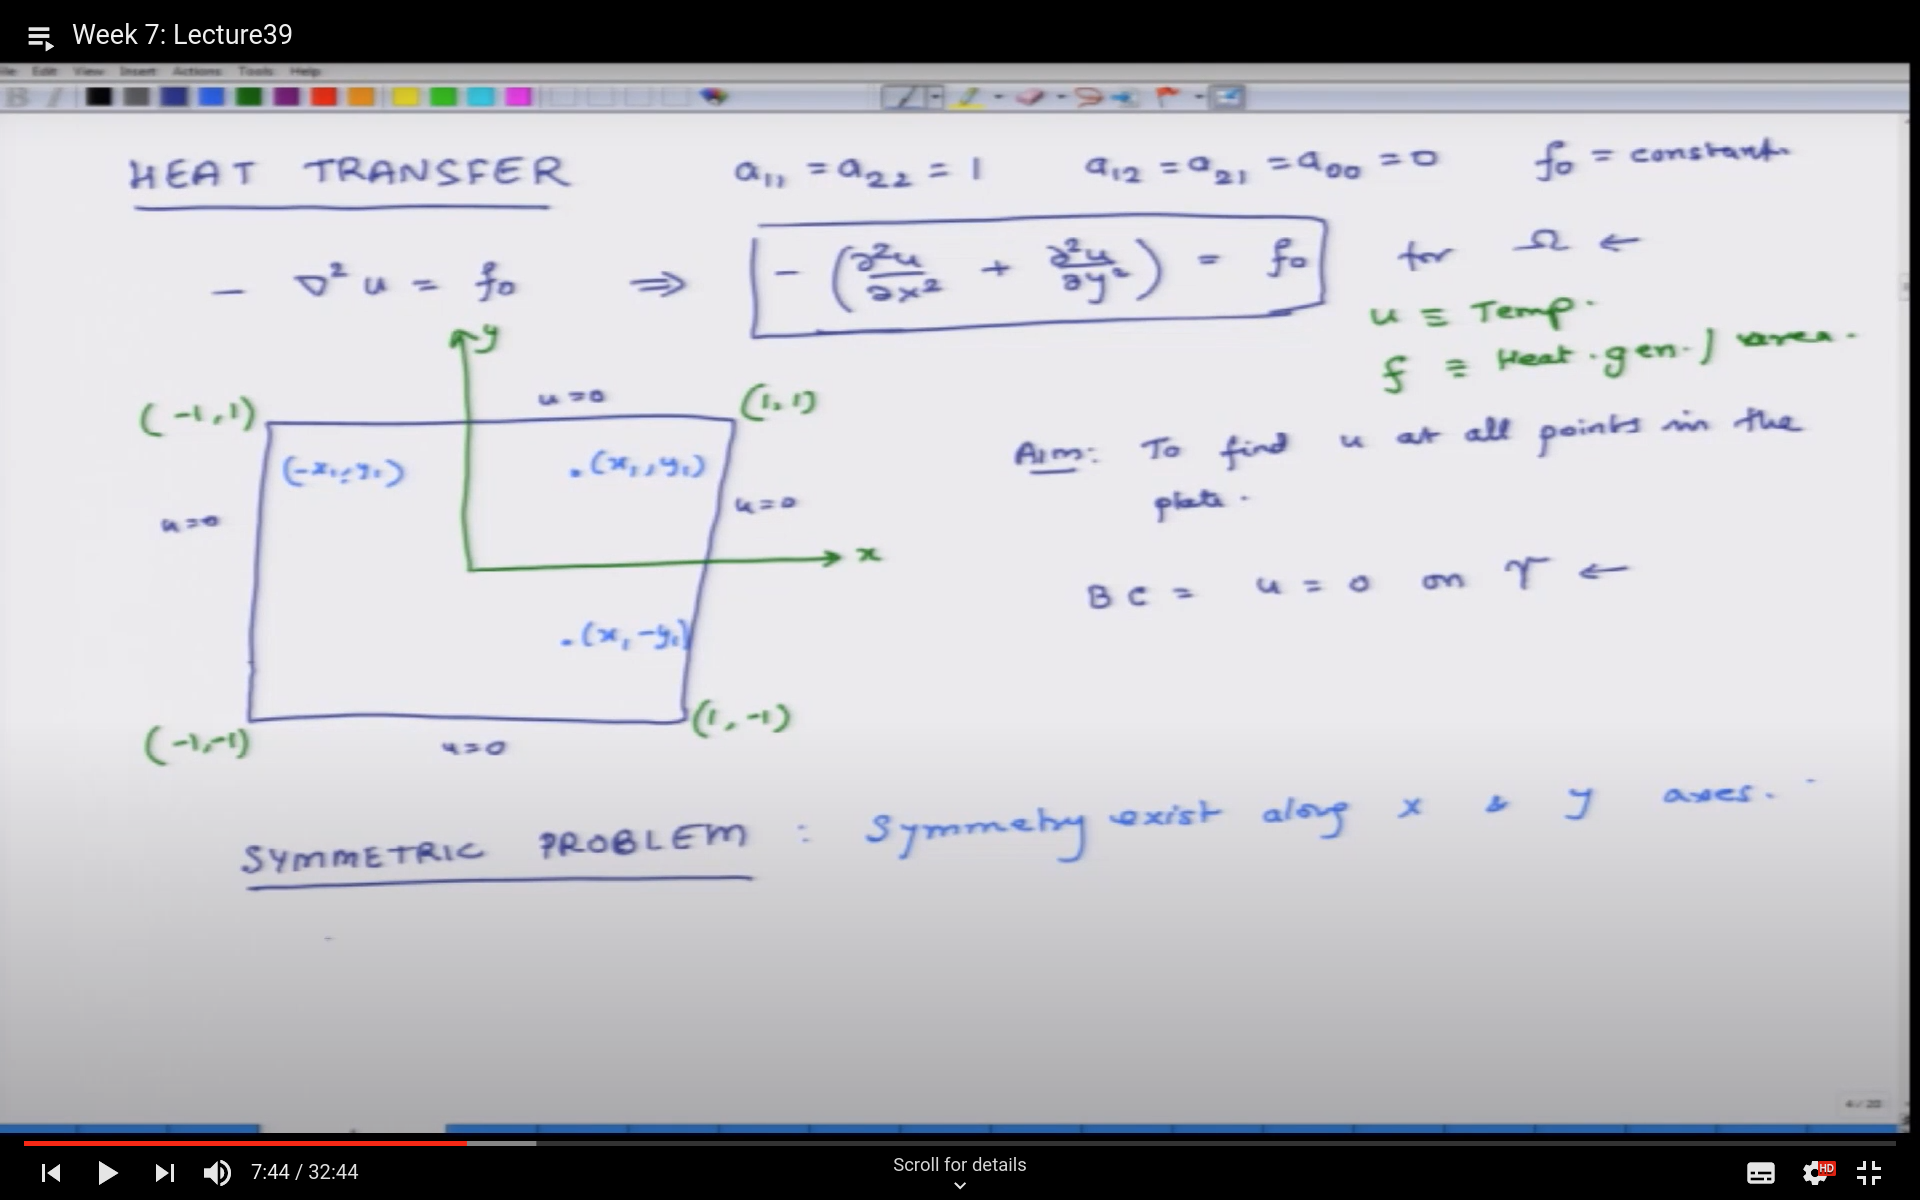 Week 7: Lecture39
File Edit View Insert Actions Tools Help
HEAT TRANSFER a₁₁ = a₂₂ = 1 a₁₂ = a₂₁ = a₀₀ = 0 f₀ = constant.
- ∇²u = f₀ ⇒ - (∂²u/∂x² + ∂²u/∂y²) = f₀ for Ω ←
u ≡ Temp.
f ≡ Heat.gen./area.
y
(-1,1) u=0 (1,1)
(-x₁,y₁) .(x₁,y₁)
u=0 u=0
x
.(x₁-y₁)
(-1,-1) u=0 (1,-1)
Aim: To find u at all points in the
plate.
BC = u = 0 on Γ ←
SYMMETRIC PROBLEM : Symmetry exist along x & y axes.
4 / 20
7:44 / 32:44
Scroll for details
HD